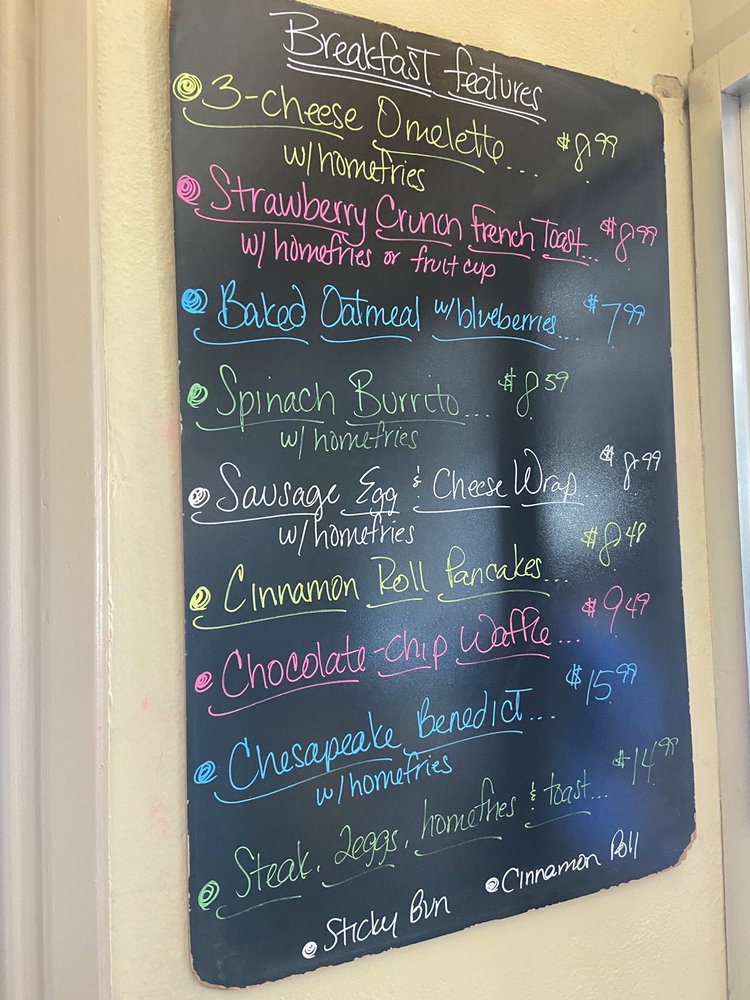 Breakfast features
3-cheese Omelette... $8.99
w/homefries
Strawberry Crunch French Toast... $8.99
w/ homefries or fruit cup
Baked Oatmeal w/blueberries... $7.99
Spinach Burrito... $8.59
w/ homefries
Sausage Egg & Cheese Wrap... $8.99
w/homefries
Cinnamon Roll Pancakes... $8.48
Chocolate-chip Waffle... $9.49
Chesapeake Benedict... $15.99
w/homefries
Steak, 2eggs, homefries & toast... $14.99
Sticky Bun Cinnamon Roll